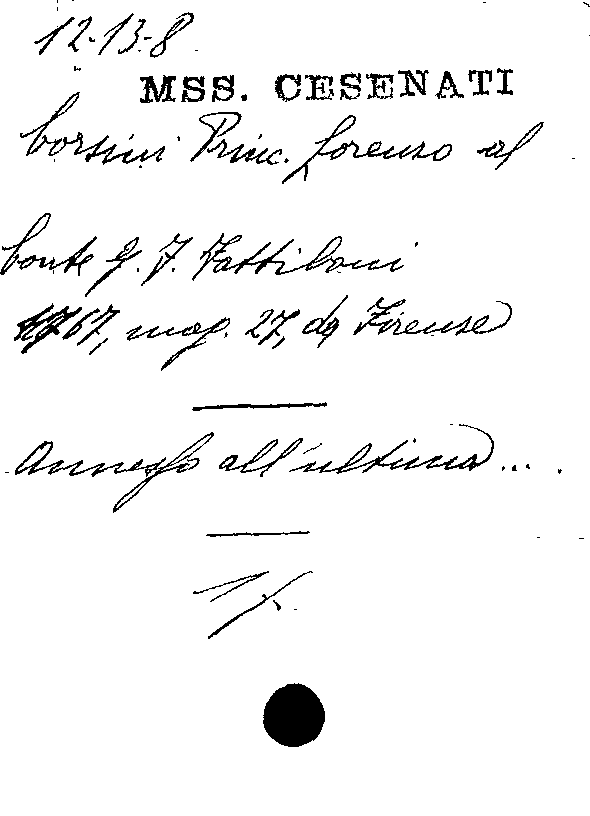 12-13-8
MSS. CESENATI
Corsini Princ. Lorenzo al
Conte G. F. Fattiboni
1767, mag. 27, da Firenze
Annesso all'ultima ....
1 f.